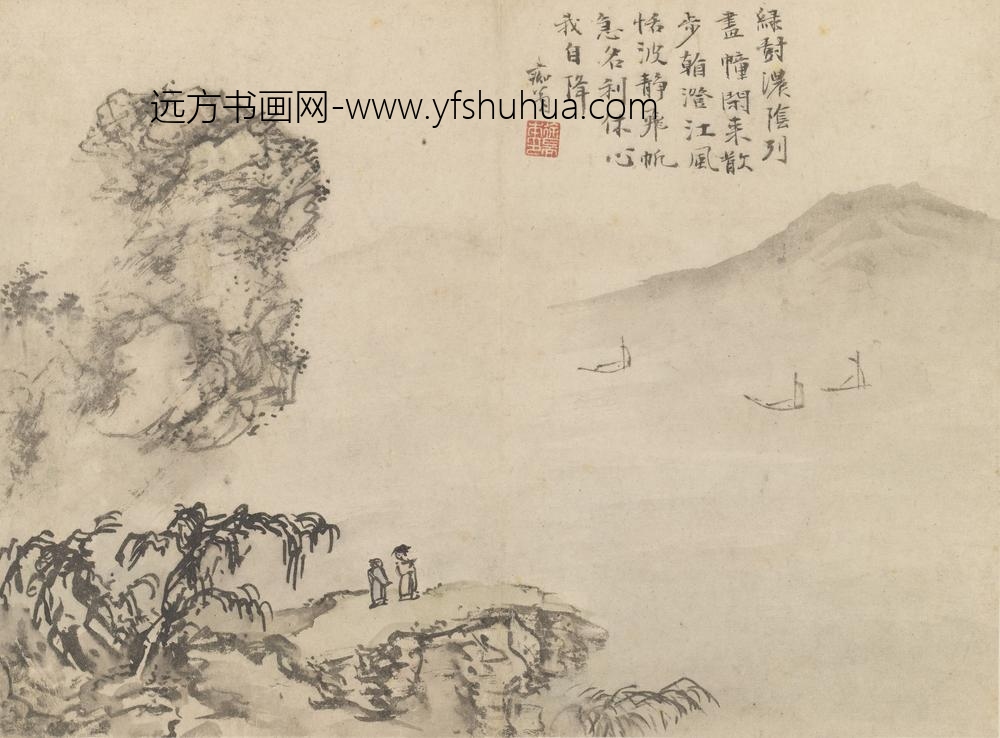 綠樹濃陰列
畫幢閑来散
步翰澄江風
恬波靜飛帆
急名利休心
我自降
癡翁
远方书画网-www.yfshuhua.com